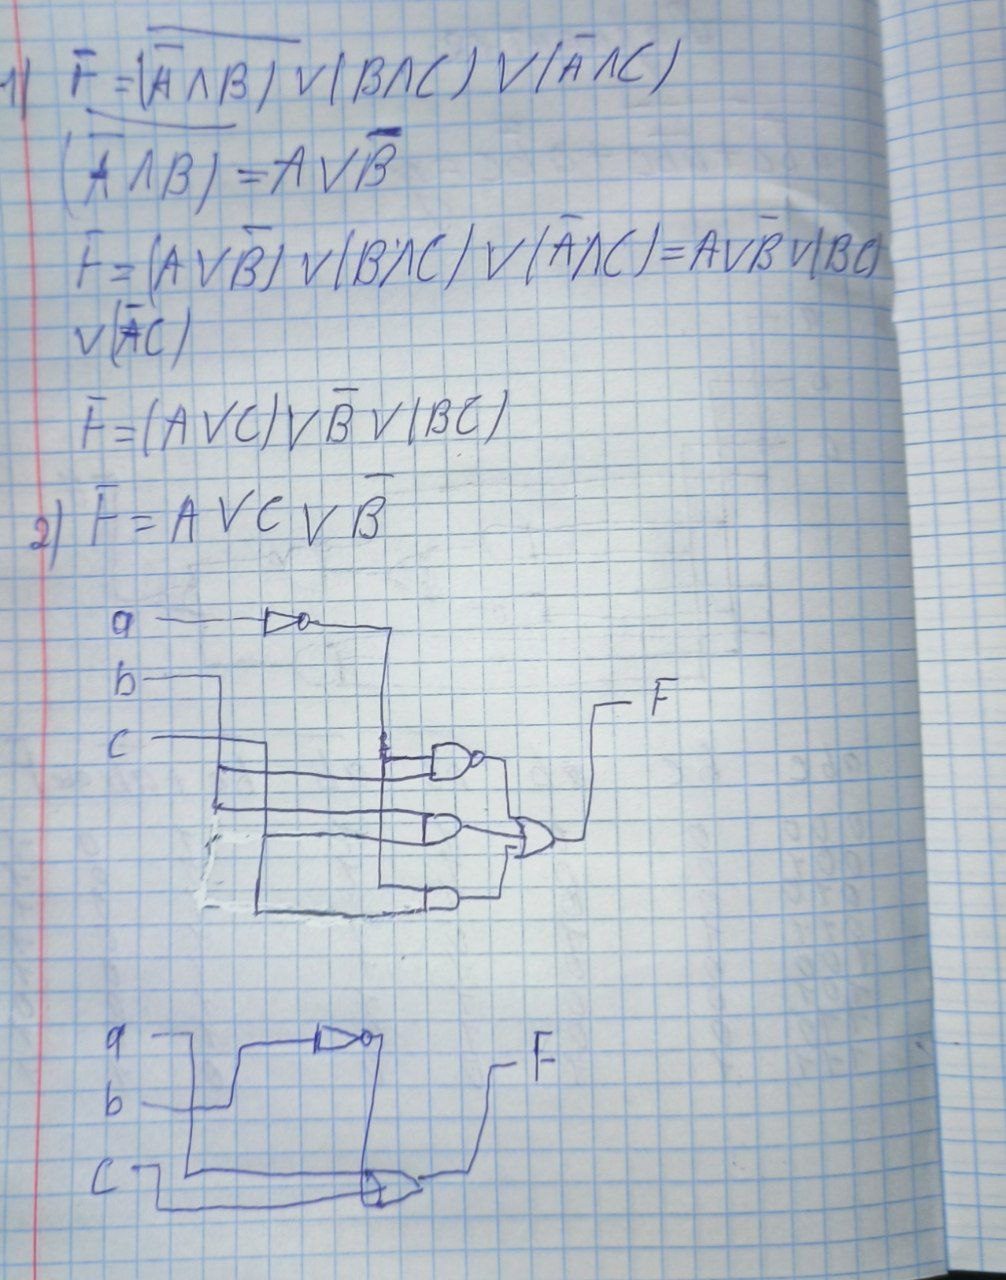 1) F̅ = (A̅ ∧ B)̅ ∨ (B ∧ C) ∨ (A̅ ∧ C)
(A̅ ∧ B)̅ = A ∨ B̅
F̅ = (A ∨ B̅) ∨ (B ∧ C) ∨ (A̅ ∧ C) = A ∨ B̅ ∨ (BC)
∨ (A̅C)
F̅ = (A ∨ C) ∨ B̅ ∨ (BC)
2) F̅ = A ∨ C ∨ B̅
a
b
F
c
a
F
b
C